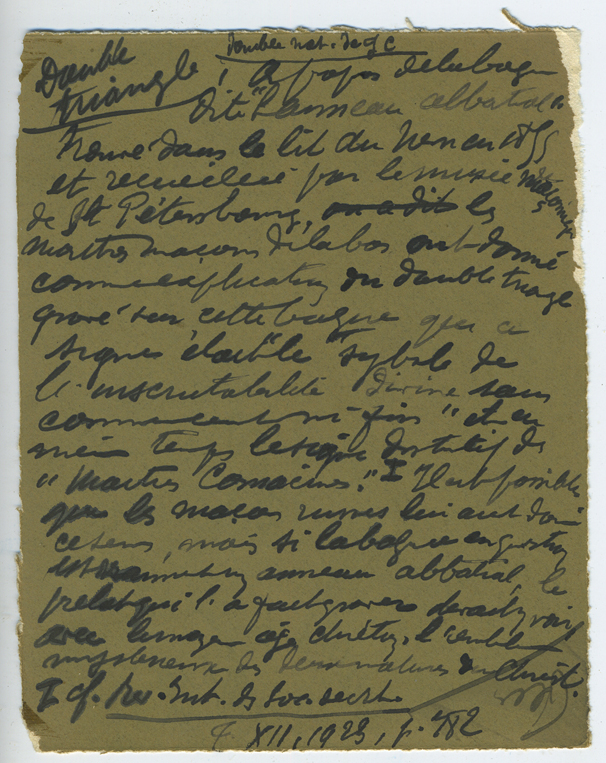 double nat. de J C
Double
triangle! A propos de la bague
dite "l'anneau abbatial"
trouvé dans le lit du en 18
et recueilli par le musée maçonnique
de St Pétersbourg, on a dit les
maîtres maçons de là bas ont donné
comme explication du double triangle
gravé sur cette bague que ce
signe était "le symbole de
l'inscrutabilité divine sans
commencement ni fin" et en
même temps le signe distinctif des
"Maîtres Comacins." I Il est possible
que les maçons russes lui aient donné
ce sens, mais si la bague en question
est vraiment un anneau abbatial, le
prélat qui l'a fait graver devait y voir
avec le moyen âge chrétien l'emblème
mystérieux des deux natures du Christ.
I cf. Rev. Int. des Soc. secrètes
XII, 1923, p. 482